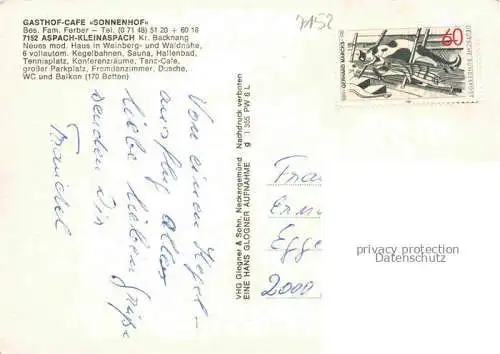 7152
GASTHOF-CAFE «SONNENHOF»
Bes. Fam. Ferber – Tel. (0 71 48) 51 20 + 60 18
7152 ASPACH-KLEINASPACH Kr. Backnang
Neues mod. Haus in Weinberg- und Waldnähe,
6 vollautom. Kegelbahnen, Sauna, Hallenbad,
Tennisplatz, Konferenzräume, Tanz-Cafe,
großer Parkplatz, Fremdenzimmer, Dusche,
WC und Balkon (170 Betten)
Von einem Kegel-
ausflug
liebe Grüße
senden Dir
VHG Glogner & Sohn, Neckargemünd Nachdruck verboten
EINE HANS GLOGNER AUFNAHME g I 355 PW 6 L
60
GERHARD MARCKS
DEUTSCHE BUNDESPOST
Frau
Egge
2000
privacy protection
Datenschutz